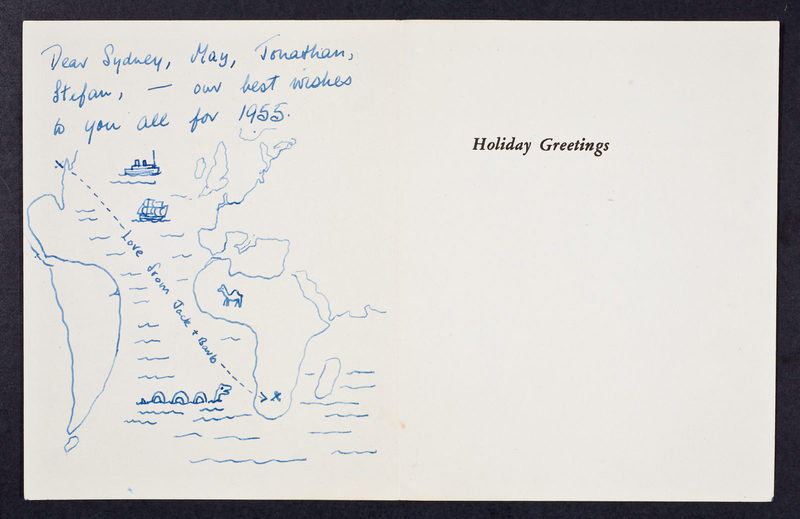 Dear Sydney, May, Jonathan,
Stefan, — our best wishes
to you all for 1955.
Love from Jack + Barb
Holiday Greetings